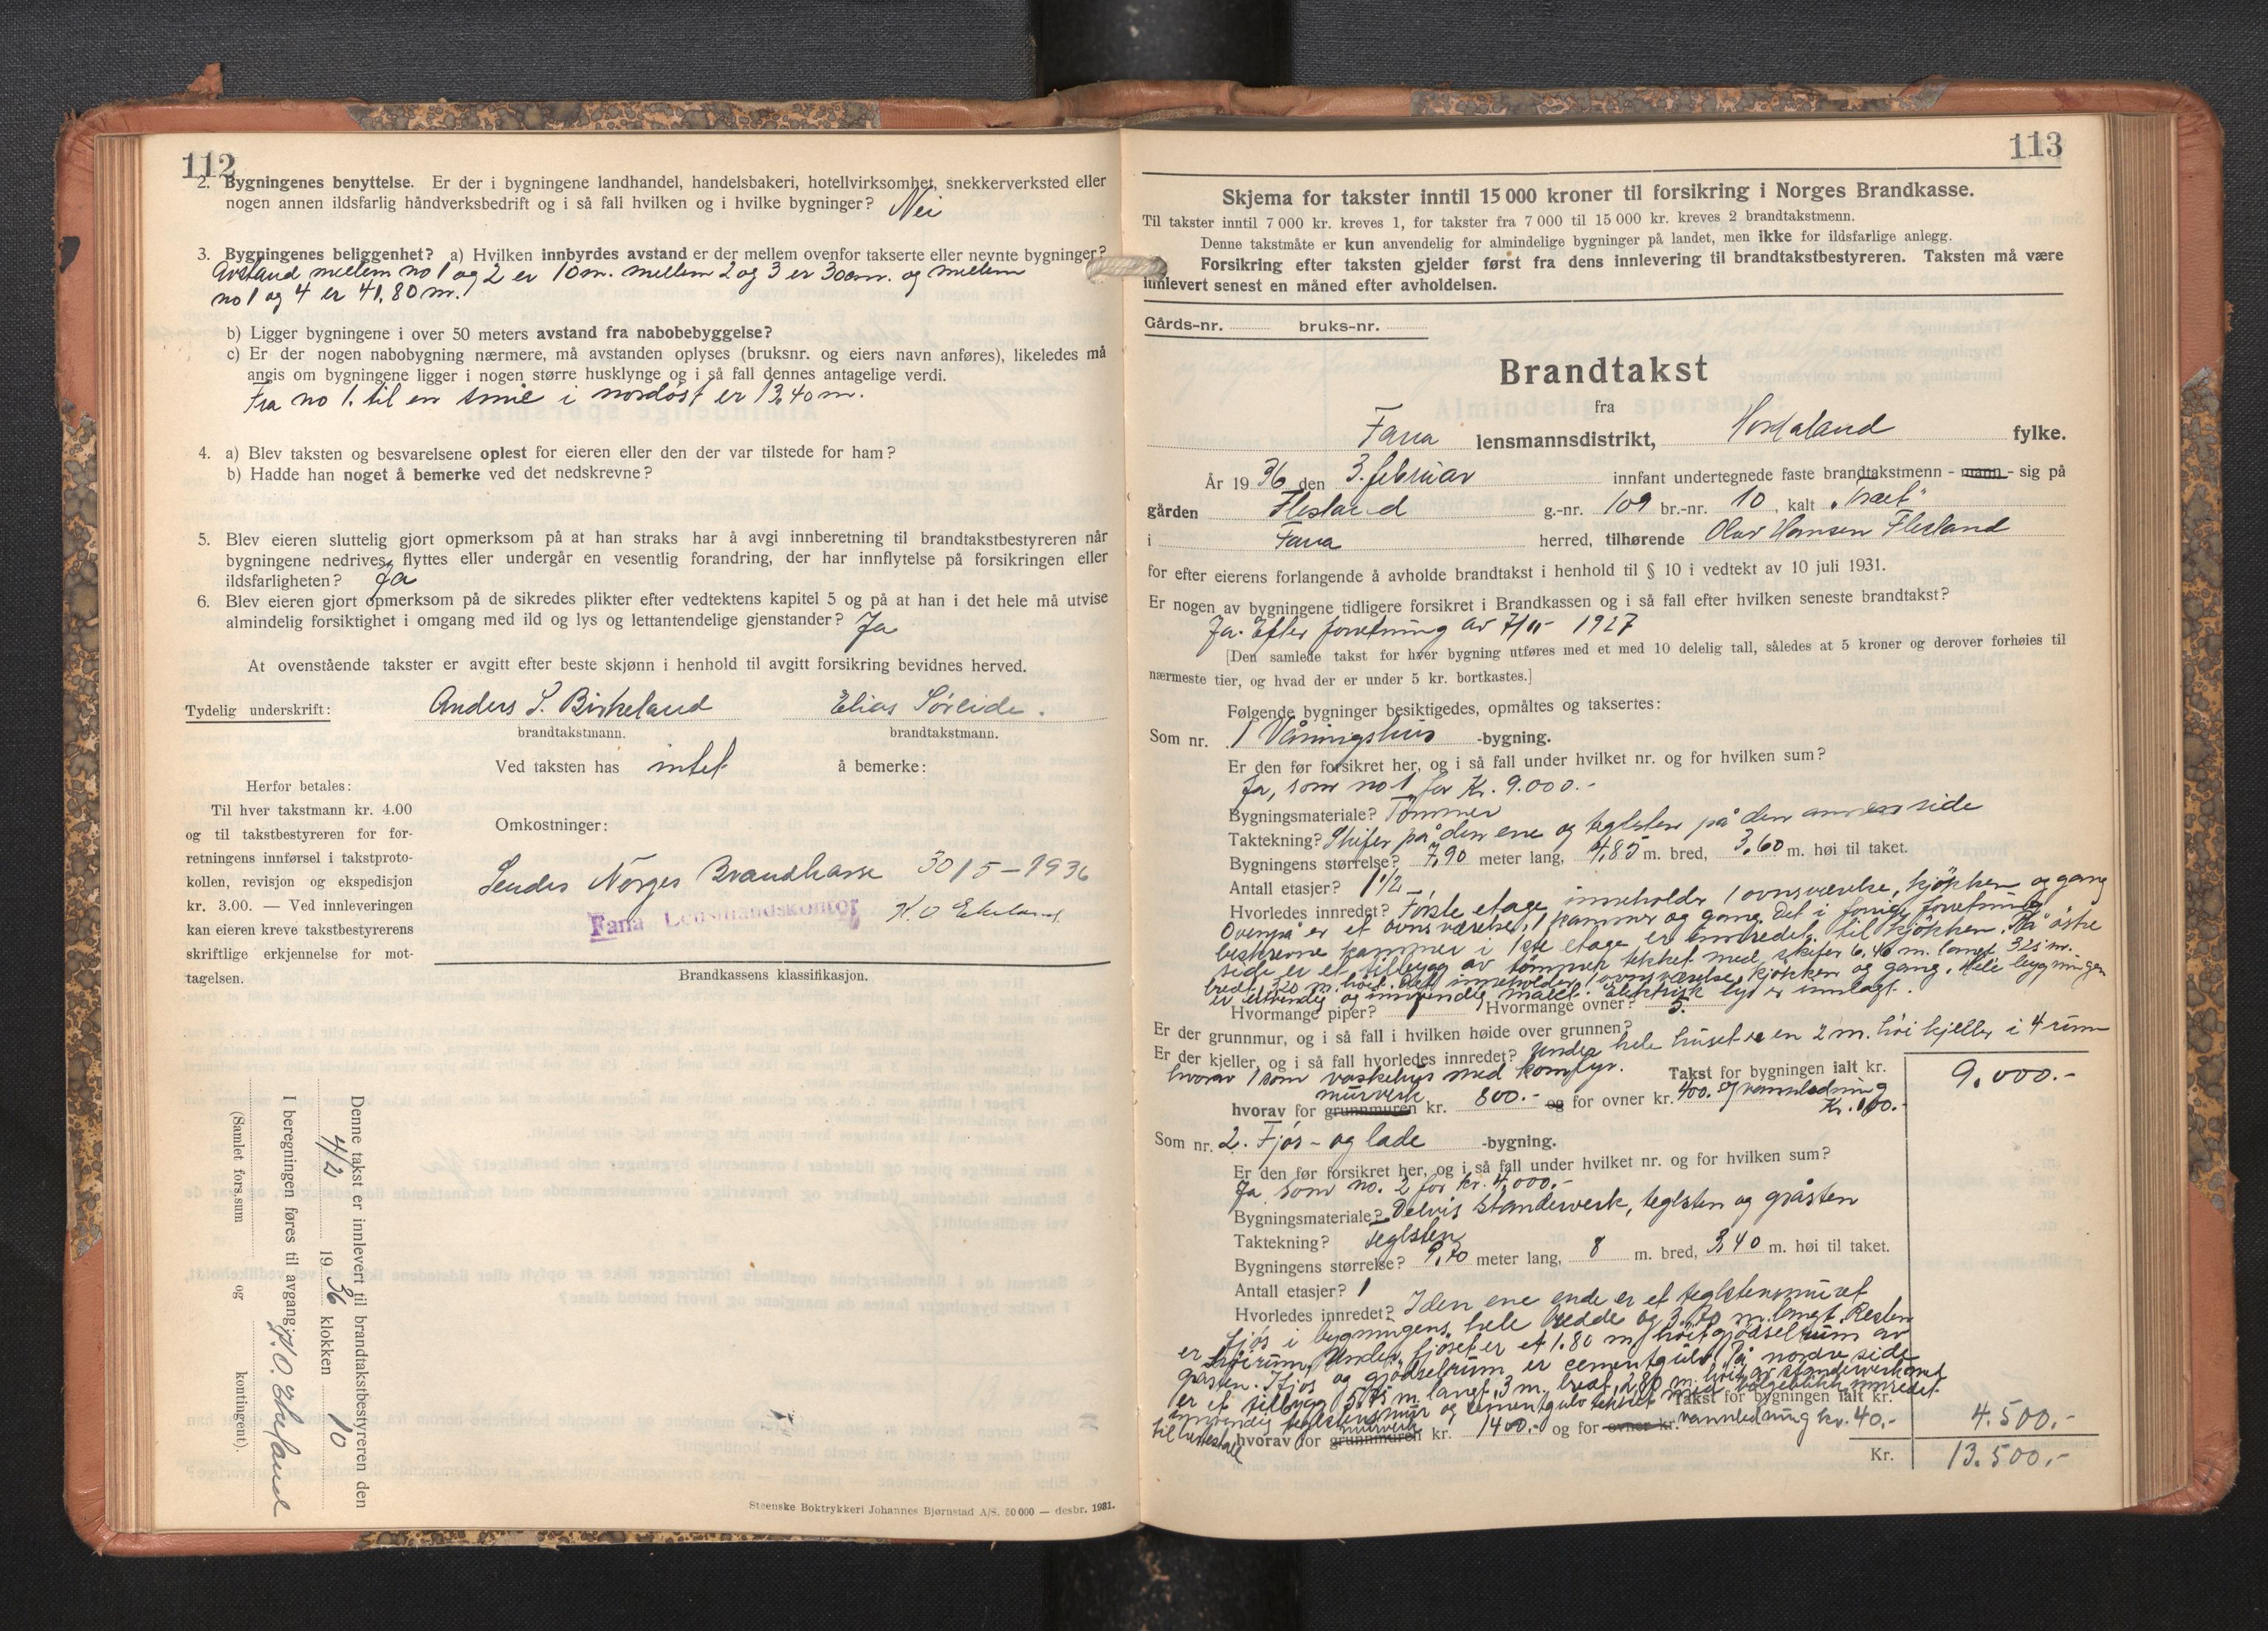 112
2. Bygningenes benyttelse. Er der i bygningene landhandel, handelsbakeri, hotellvirksomhet, snekkerverksted eller
nogen annen ildsfarlig håndverksbedrift og i så fall hvilken og i hvilke bygninger? Nei
3. Bygningenes beliggenhet? a) Hvilken innbyrdes avstand er der mellem ovenfor takserte eller nevnte bygninger?
Avstand mellem no 1 og 2 er 10 m. mellem 2 og 3 er 30 cm. og mellem
no 1 og 4 er 41,80 m.
b) Ligger bygningene i over 50 meters avstand fra nabobebyggelse?
c) Er der nogen nabobygning nærmere, må avstanden oplyses (bruksnr. og eiers navn anføres), likeledes må
angis om bygningene ligger i nogen større husklynge og i så fall dennes antagelige verdi.
Fra no 1. til en smie i nordøst er 13,40 m.
4. a) Blev taksten og besvarelsene oplest for eieren eller den der var tilstede for ham?
b) Hadde han noget å bemerke ved det nedskrevne?
5. Blev eieren sluttelig gjort opmerksom på at han straks har å avgi innberetning til brandtakstbestyreren når
bygningene nedrives, flyttes eller undergår en vesentlig forandring, der har innflytelse på forsikringen eller
ildsfarligheten? Ja
6. Blev eieren gjort opmerksom på de sikredes plikter efter vedtektens kapitel 5 og på at han i det hele må utvise
almindelig forsiktighet i omgang med ild og lys og lettantendelige gjenstander? Ja
At ovenstående takster er avgitt efter beste skjønn i henhold til avgitt forsikring bevidnes herved.
Tydelig underskrift: Anders S. Birkeland Elias Søreide.
brandtakstmann. brandtakstmann.
Ved taksten has intet å bemerke:
Herfor betales:
Til hver takstmann kr. 4.00
og til takstbestyreren for for-
retningens innførsel i takstproto-
kollen, revisjon og ekspedisjon
kr. 3.00. — Ved innleveringen
kan eieren kreve takstbestyrerens
skriftlige erkjennelse for mot-
tagelsen.
Omkostninger:
Sendes Norges Brandkasse 30/5-1936
Fana Lensmandskontor K. O Ekeland
Brandkassens klassifikasjon.
Denne takst er innlevert til brandtakstbestyreren den
4/2 1936 klokken 10
I beregningen føres til avgang: K. O. Ekeland
(Samlet fors.sum og kontingent).
Steenske Boktrykkeri Johannes Bjørnstad A/S. 50 000 — desbr. 1931.
113
Skjema for takster inntil 15 000 kroner til forsikring i Norges Brandkasse.
Til takster inntil 7 000 kr. kreves 1, for takster fra 7 000 til 15 000 kr. kreves 2 brandtakstmenn.
Denne takstmåte er kun anvendelig for almindelige bygninger på landet, men ikke for ildsfarlige anlegg.
Forsikring efter taksten gjelder først fra dens innlevering til brandtakstbestyreren. Taksten må være
innlevert senest en måned efter avholdelsen.
Gårds-nr. bruks-nr.
Brandtakst
fra
Fana lensmannsdistrikt, Hordaland fylke.
År 1936 den 3. februar innfant undertegnede faste brandtakstmenn - mann - sig på
gården Flesland g.-nr. 109 br.-nr. 10, kalt
i Fana herred, tilhørende Olav Hansen Flesland
for efter eierens forlangende å avholde brandtakst i henhold til § 10 i vedtekt av 10 juli 1931.
Er nogen av bygningene tidligere forsikret i Brandkassen og i så fall efter hvilken seneste brandtakst?
Ja. Efter forretning av 7/11- 1927
[Den samlede takst for hver bygning utføres med et med 10 delelig tall, således at 5 kroner og derover forhøies til
nærmeste tier, og hvad der er under 5 kr. bortkastes.]
Følgende bygninger besiktigedes, opmåltes og taksertes:
Som nr. 1 Våningshus -bygning.
Er den før forsikret her, og i så fall under hvilket nr. og for hvilken sum?
Ja, som no 1 for Kr. 9.000.-
Bygningsmateriale? Tømmer
Taktekning? Skifer på den ene og teglsten på den annen side
Bygningens størrelse? 7,90 meter lang, 4,85 m. bred, 3,60 m. høi til taket.
Antall etasjer? 1 1/2
Hvorledes innredet? Første etage inneholder 1 ovnsværelse, kjøkken og gang
Ovenpå er et ovnsværelse, 1 kammer og gang. Det i forrige forretning
beskrevne kammer i 1ste etage er innredet til kjøkken. På østre
side er et tilbygg av tømmer tekket med skifer 6,40 m. langt 3,25 m.
bredt, 3,20 m. høit. Det inneholder 1 ovnsværelse, kjøkken og gang. Hele bygningen
er utvendig og innvendig malet. Elektrisk lys er innlagt.
Hvormange piper? 1 Hvormange ovner? 5.
Er der grunnmur, og i så fall i hvilken høide over grunnen?
Er der kjeller, og i så fall hvorledes innredet? Under hele huset er en 2 m. høi kjeller i 4 rum
hvorav 1 som vaskehus med komfyr. Takst for bygningen ialt kr. 9.000.-
murverk
hvorav for grunnmuren kr. 800.- og for ovner kr. 400. og vannledning
Kr. 100.-
Som nr. 2. Fjøs- og lade -bygning.
Er den før forsikret her, og i så fall under hvilket nr. og for hvilken sum?
Ja som no. 2 for kr. 4.000.-
Bygningsmateriale? Delvis Standerverk, teglsten og gråsten
Taktekning? Teglsten
Bygningens størrelse? 9,70 meter lang, 8 m. bred, 3,40 m. høi til taket.
Antall etasjer? 1
Hvorledes innredet? I den ene ende er et teglstensmuret
fjøs i bygningens hele bredde og 3,70 m. langt. Resten
er høirum. Under fjøset er et 1.80 m. høit gjødselrum av
gråsten. I fjøs og gjødselrum er cementgulv. På nordre side
er et tilbygg 5,75 m. langt, 3 m. bredt, 2,80 m. høit av standerverk med
innvendig teglstensmur og cementgulv tekket med bølgeblikk innredet
til hestestall Takst for bygningen ialt kr. 4.500.-
murverk
hvorav for grunnmuren kr. 1400.- og for ovner kr. vannledning kr. 40.-
Kr. 13.500.-